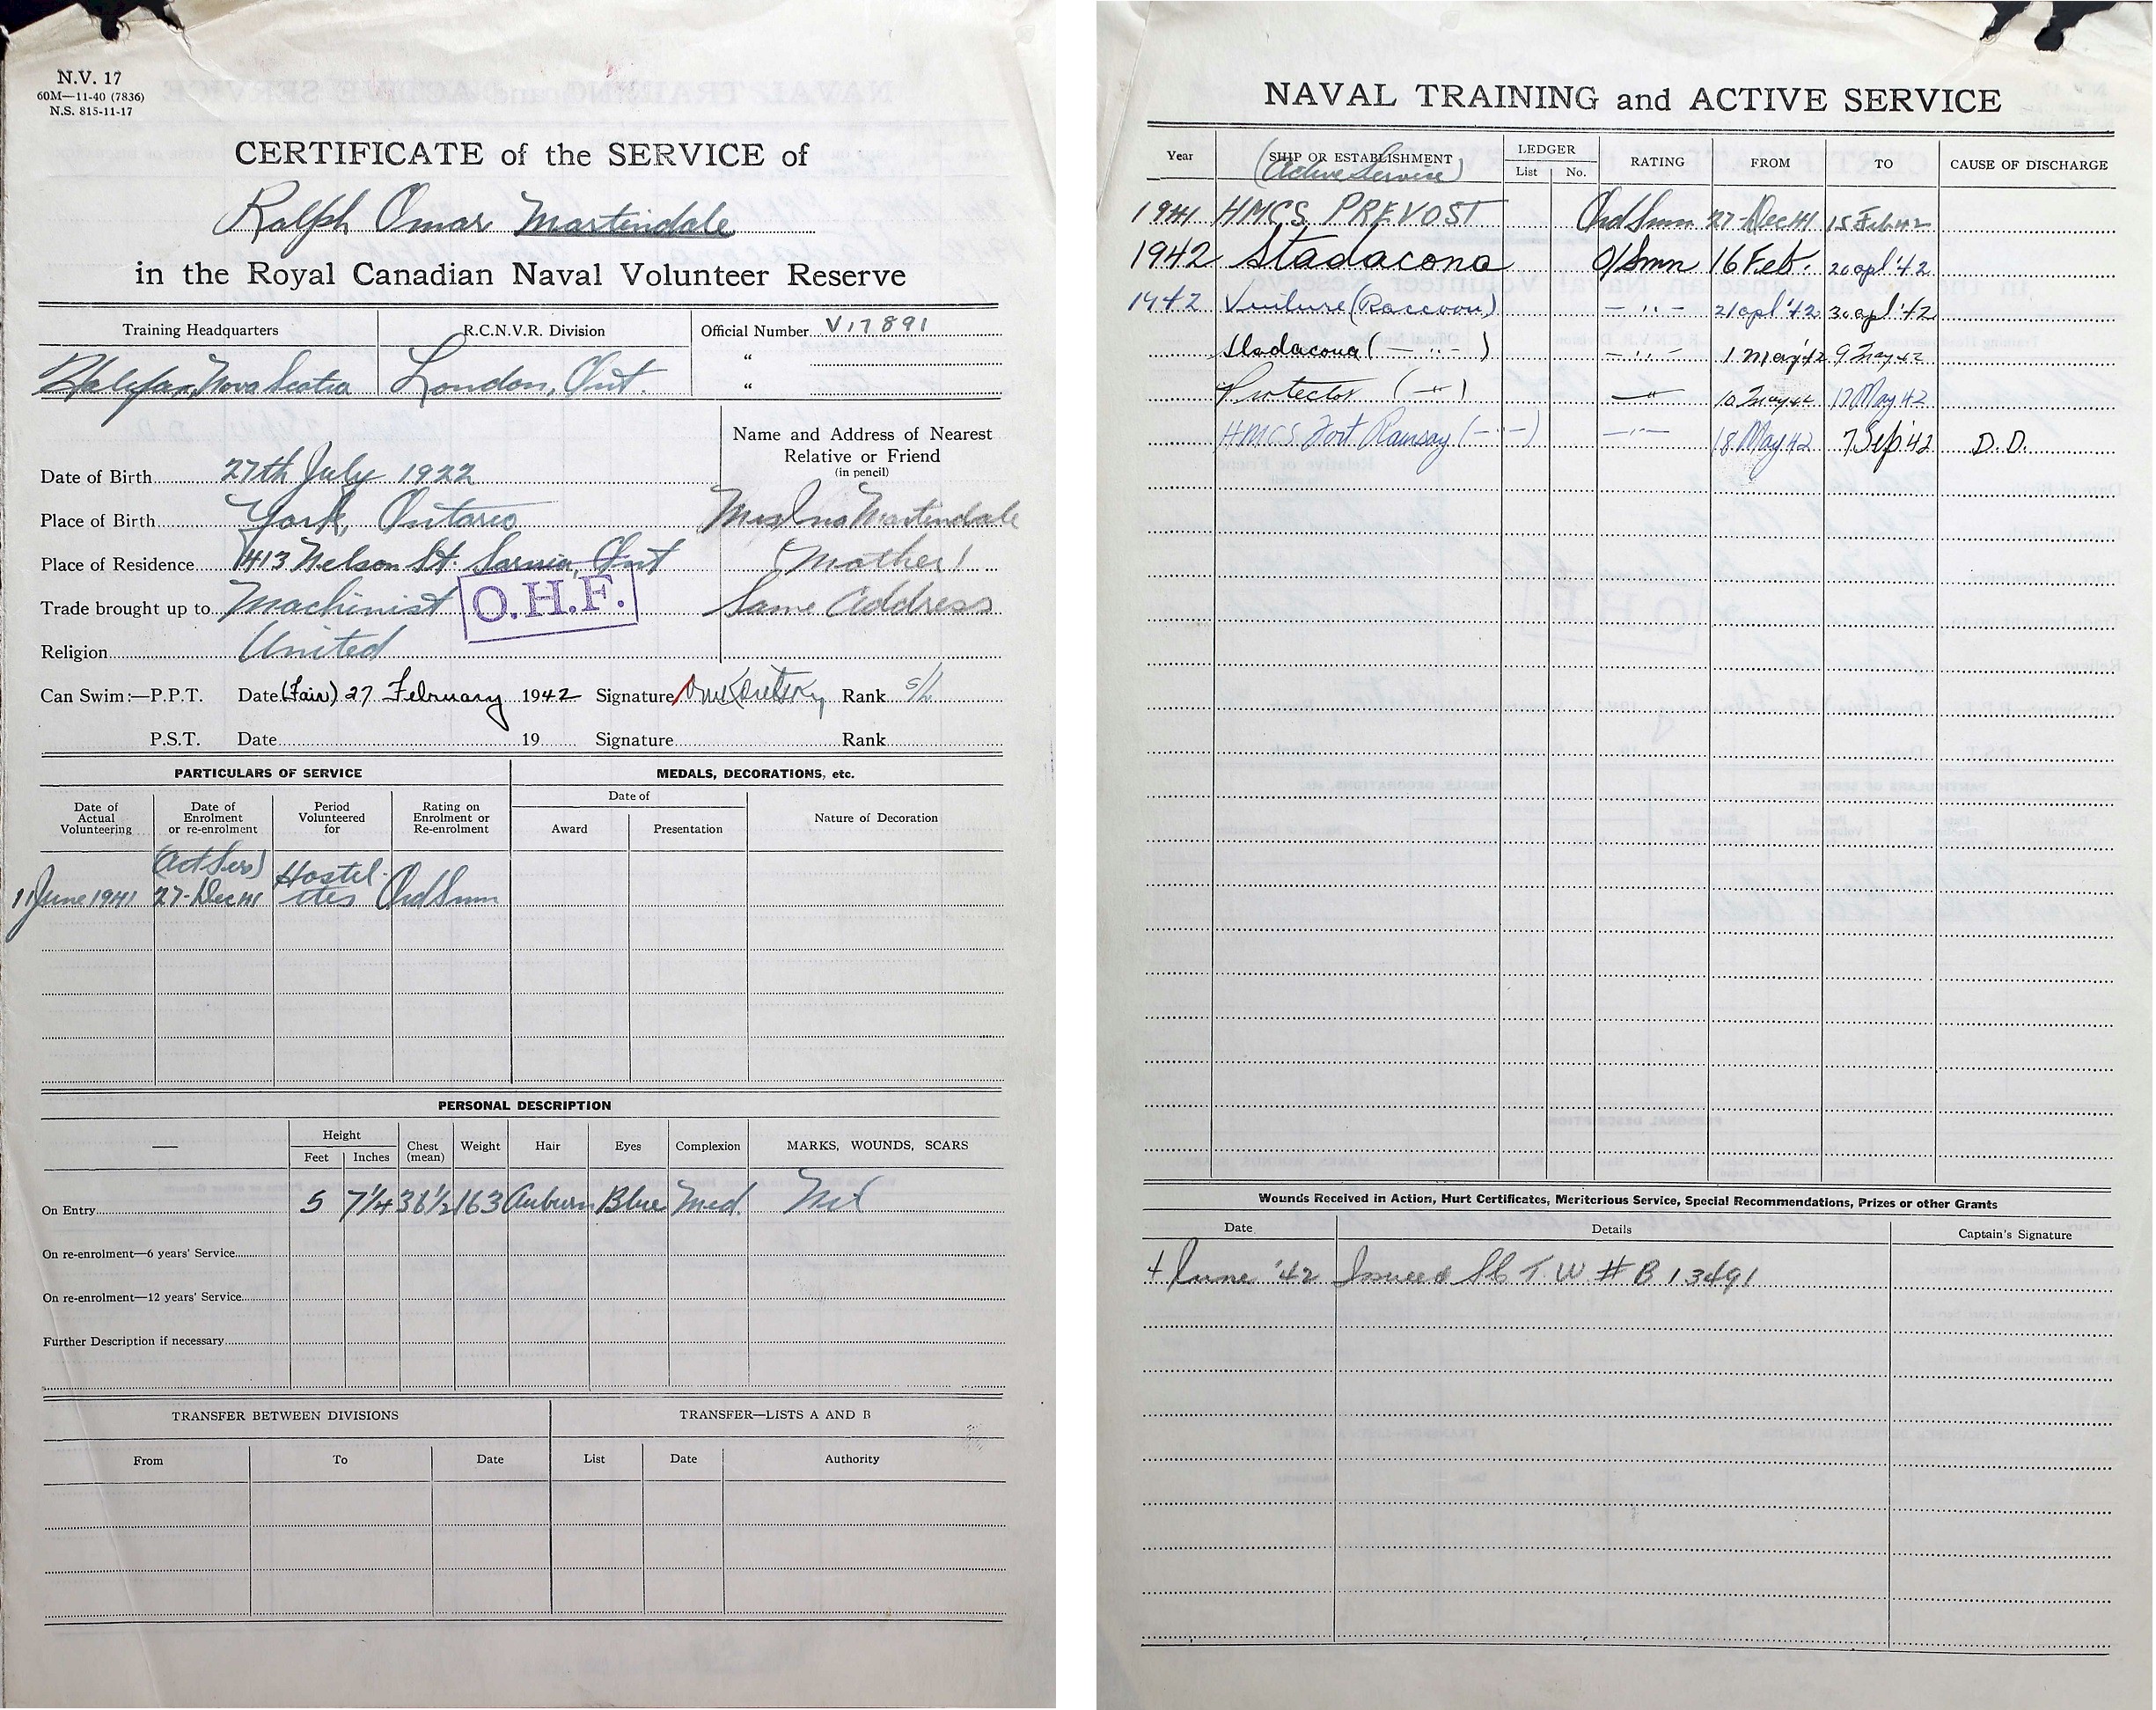 N.V. 17
60M—11-40 (7836)
N.S. 815-11-17
CERTIFICATE of the SERVICE of
Ralph Omar Martindale
in the Royal Canadian Naval Volunteer Reserve
Training Headquarters R.C.N.V.R. Division Official Number V17891
Halifax, Nova Scotia London, Ont. "
"
Name and Address of Nearest
Relative or Friend
(in pencil)
Date of Birth 27th July 1922
Place of Birth York, Ontario Mrs Ina Martindale
Place of Residence 413 Nelson St. Sarnia, Ont (Mother)
Trade brought up to Machinist O.H.F. Same Address
Religion United
Can Swim:—P.P.T. Date (Fair) 27 February 1942 Signature Rank S/L
P.S.T. Date 19 Signature Rank
PARTICULARS OF SERVICE MEDALS, DECORATIONS, etc.
Date of Actual Volunteering Date of Enrolment or re-enrolment Period Volunteered for Rating on Enrolment or Re-enrolment Date of Award Presentation Nature of Decoration
(Act Serv) Hostil-
11 June 1941 27-Dec 41 ities Ord Smn
PERSONAL DESCRIPTION
— Height Feet Inches Chest (mean) Weight Hair Eyes Complexion MARKS, WOUNDS, SCARS
On Entry 5 7 1/4 36 1/2 163 Auburn Blue Med. Nil
On re-enrolment—6 years' Service
On re-enrolment—12 years' Service
Further Description if necessary
TRANSFER BETWEEN DIVISIONS TRANSFER—LISTS A AND B
From To Date List Date Authority
NAVAL TRAINING and ACTIVE SERVICE
Year SHIP OR ESTABLISHMENT LEDGER List No. RATING FROM TO CAUSE OF DISCHARGE
(Active Service)
1941 HMCS PREVOST Ord Smn 27-Dec 41 15 Feb 42
1942 Stadacona O/Smn 16 Feb. 20 apl '42
1942 Venture (Raccoon) — " — 21 apl '42 30 apl '42
Stadacona (— " —) — " — 1 May '42 9 May 42
Protector (— " —) — " — 10 May 42 17 May 42
HMCS Fort Ramsay (— " —) — " — 18 May 42 7 Sep '42 D.D.
Wounds Received in Action, Hurt Certificates, Meritcrious Service, Special Recommendations, Prizes or other Grants
Date Details Captain's Signature
4 June '42 Issued T W # B 13491